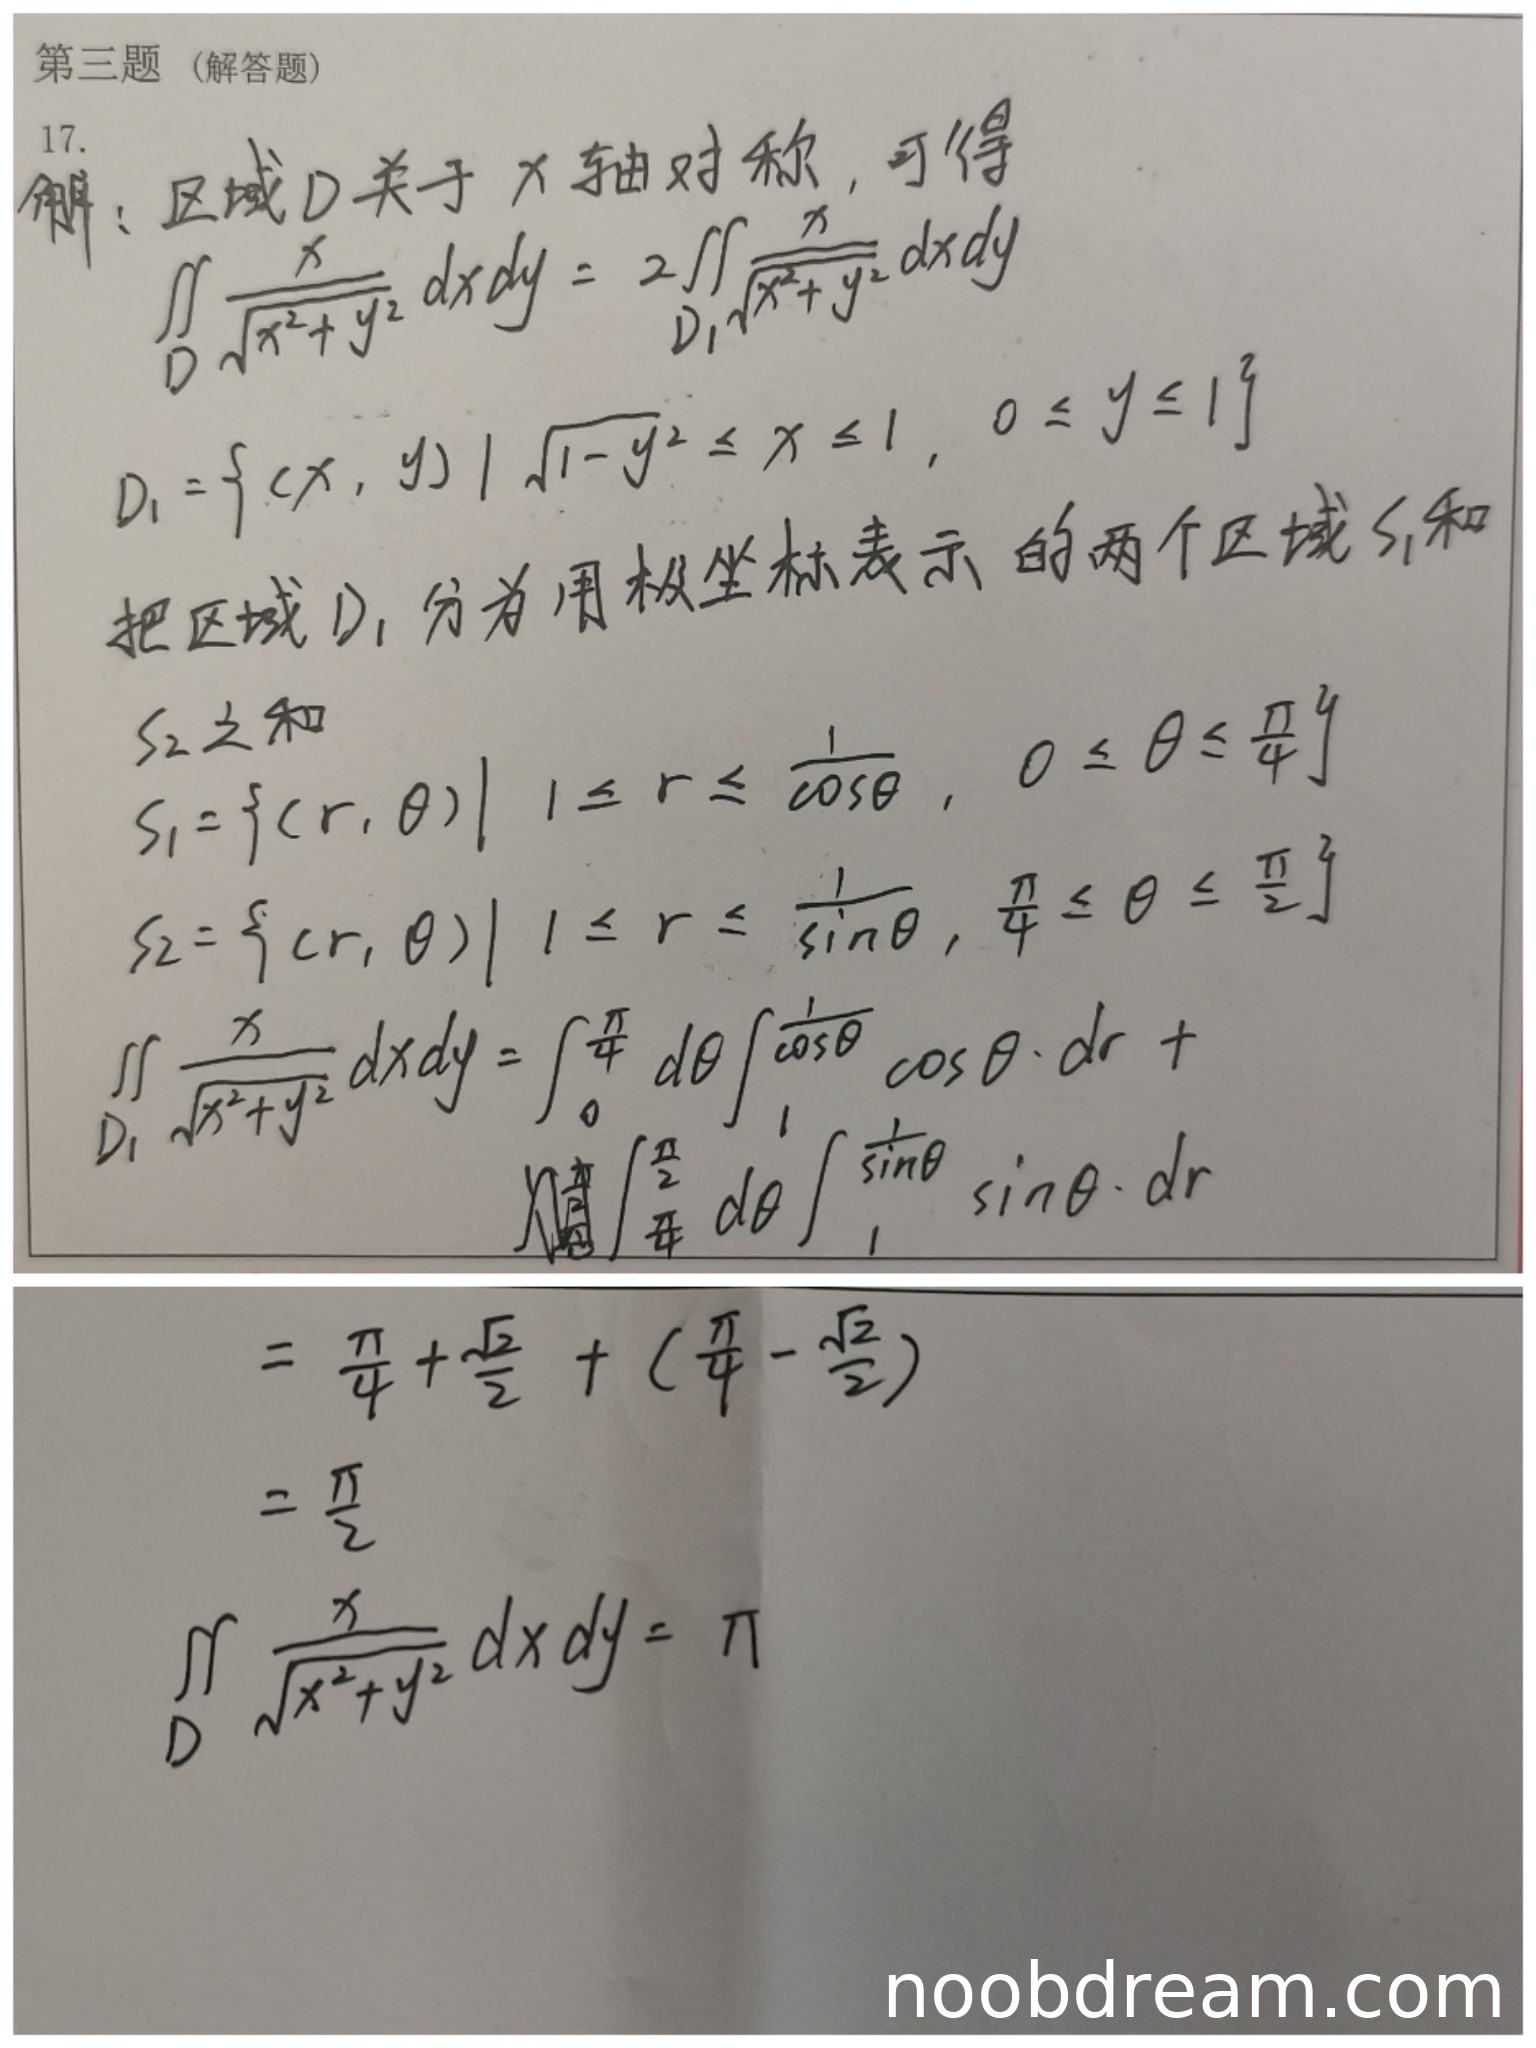 第三题 (解答题)
17.
解：区域D关于x轴对称，可得
∬_D x/√(x²+y²) dxdy = 2∬_{D₁} x/√(x²+y²) dxdy
D₁={(x, y) | √(1-y²) ≤ x ≤ 1, 0 ≤ y ≤ 1}
把区域D₁分为用极坐标表示的两个区域S₁和
S₂之和
S₁={(r, θ) | 1 ≤ r ≤ 1/cosθ, 0 ≤ θ ≤ π/4}
S₂={(r, θ) | 1 ≤ r ≤ 1/sinθ, π/4 ≤ θ ≤ π/2}
∬_{D₁} x/√(x²+y²) dxdy = ∫_0^{π/4} dθ ∫_1^{1/cosθ} cosθ·dr +
∫_{π/4}^{π/2} dθ ∫_1^{1/sinθ} sinθ·dr
= π/4 + √2/2 + (π/4 - √2/2)
= π/2
∬_D x/√(x²+y²) dxdy = π
noobdream.com